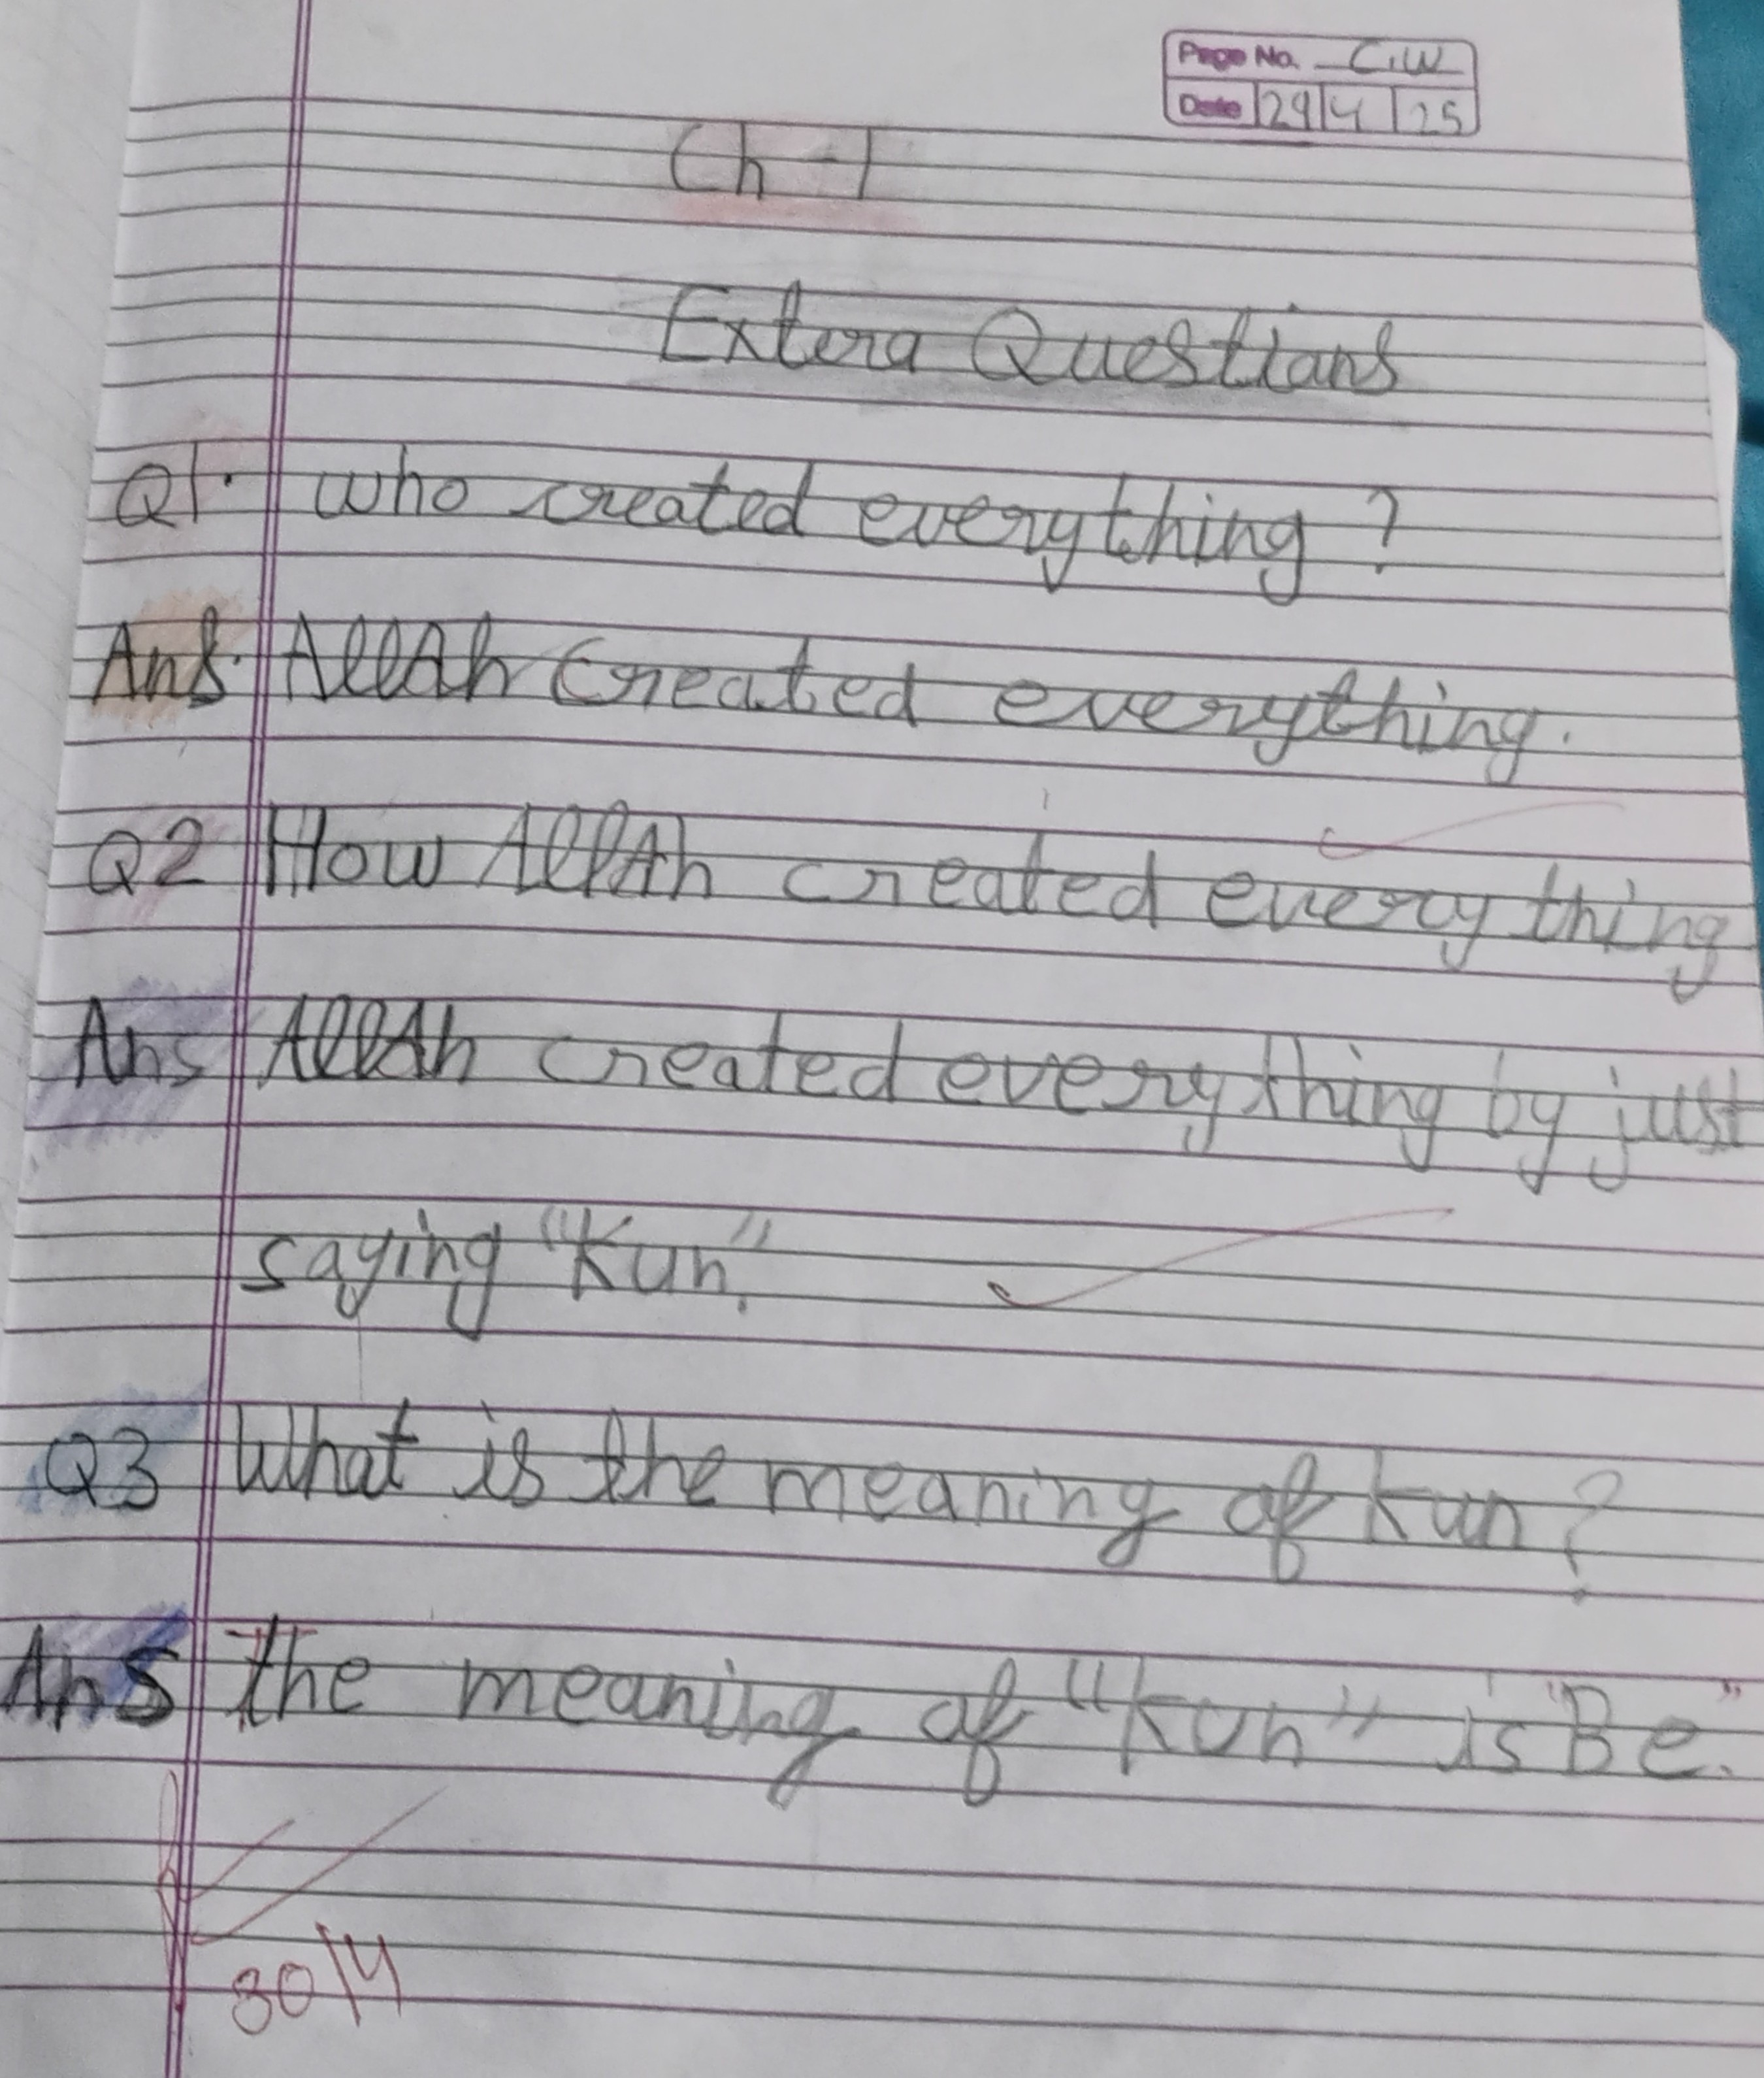 Page No. C.W
Date 29 4 25
Ch-1
Extra Questions
Q1. who created everything?
Ans. AllAh Created everything.
Q2 How AllAh created everything
Ans AllAh created everything by just
saying "Kun".
Q3 What is the meaning of Kun?
Ans The meaning of "Kun" is "Be".
30/4